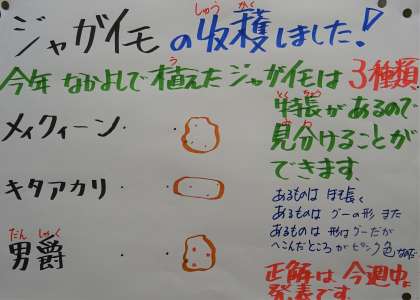 しゅう かく
ジャガイモの収穫しました!
う
今年 なかよしで植えたジャガイモは3種類
メイクィーン
キタアカリ
だん しゃく
男爵
とく ちょう
特長があるので
み わ
見分けることが
できます。
あるものは ほそ長く
あるものは グーの形 また
あるものは 形はグーだが
へこんだところがピンク色
正解は 今週中。
発表です